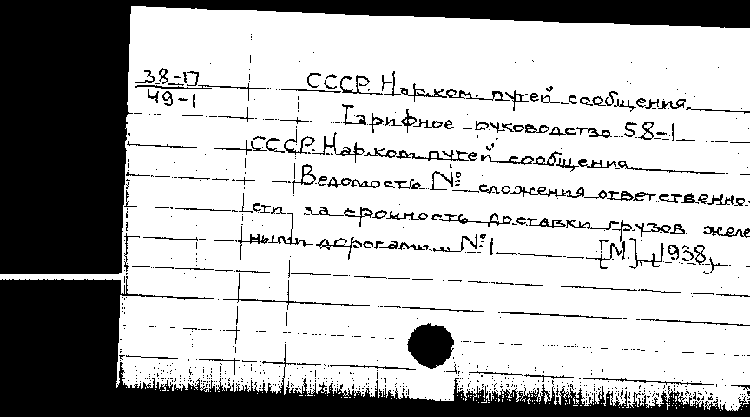 38-П
49-1
СССР. Нар. ком. путей сообщения.
Тарифное руководство 58-1
СССР. Нар. ком. путей сообщения
Ведомость № сложения ответственно-
сти за срочность доставки грузов желе
ными дорогами... №1 [М], [1938].